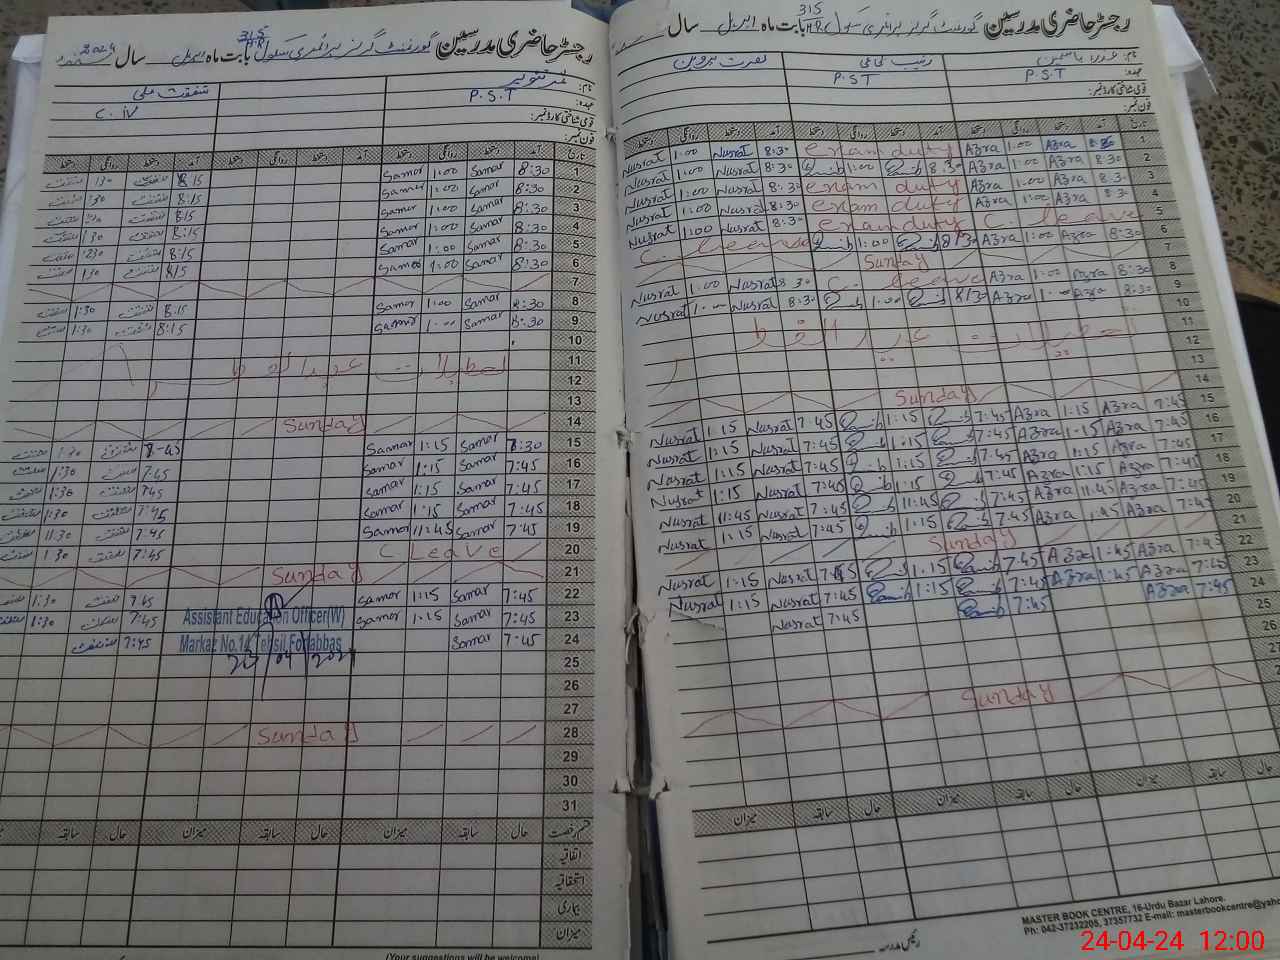 رجسٹر حاضری مدرسین گورنمنٹ گرلز پرائمری سکول 315/HR بابت ماہ اپریل سال 2024
نام:
عہدہ: P.S.T
قومی شناختی کارڈ نمبر:
فون نمبر:
شفقت علی
C. iv
تاریخ آمد دستخط روانگی دستخط آمد دستخط روانگی دستخط آمد دستخط روانگی دستخط
1 8:30 Samar 1:00 Samar 8:15 شفقت 1:30 شفقت
2 8:30 Samar 1:00 Samar 8:15 شفقت 1:30 شفقت
3 8:30 Samar 1:00 Samar 8:15 شفقت 1:30 شفقت
4 8:30 Samar 1:00 Samar 8:15 شفقت 1:30 شفقت
5 8:30 Samar 1:00 Samar 8:15 شفقت شفقت
6 8:30 Samar 1:00 Samar 8:15 شفقت 1:30 شفقت
7
8 8:30 Samar 1:00 Samar 8:15 شفقت 1:30 شفقت
9 8:30 Samar 1:00 Samar 8:15 شفقت 1:30 شفقت
10
11 تعطیلات عید الفطر
12
13
14 Sunday
15 8:30 Samar 1:15 Samar شفقت 1:30 شفقت
16 7:45 Samar 1:15 Samar 7:45 شفقت 1:30 شفقت
17 7:45 Samar 1:15 Samar 7:45 شفقت 1:30 شفقت
18 7:45 Samar 1:15 Samar 7:45 شفقت 1:30 شفقت
19 7:45 Samar 11:45 Samar 7:45 شفقت 11:30 شفقت
20 C Leave 7:45 شفقت 1:30 شفقت
21 Sunday
22 7:45 Samar 1:15 Samar 7:45 شفقت 1:30 شفقت
23 7:45 Samar 1:15 Samar 7:45 شفقت 1:30 شفقت
Assistant Education Officer(W)
24 7:45 Samar 7:45 شفقت
Markaz No.14 Tehsil Fortabbas
23/04/2024
25
26
27
28 Sunday
29
30
31
قسم رخصت حال سابقہ میزان حال سابقہ میزان حال سابقہ
اتفاقیہ
استحقاقیہ
بیماری
میزان
(Your suggestions will be welcome)
رجسٹر حاضری مدرسین گورنمنٹ گرلز پرائمری سکول 315/HR بابت ماہ اپریل سال
نام: عذرا یاسمین نصرت پروین
عہدہ: P.S.T P.S.T
قومی شناختی کارڈ نمبر:
فون نمبر:
تاریخ آمد دستخط روانگی دستخط آمد دستخط روانگی دستخط آمد دستخط روانگی دستخط
1 8:30 Azra 1:00 Azra exam duty 8:30 Nusrat 1:00 Nusrat
2 8:30 Azra 1:00 Azra 8:30 1:00 8:30 Nusrat 1:00 Nusrat
3 8:30 Azra 1:00 Azra exam duty 8:30 Nusrat 1:00 Nusrat
4 8:30 Azra 1:00 Azra exam duty 8:30 Nusrat 1:00 Nusrat
5 C. leave exam duty 8:30 Nusrat 1:00 Nusrat
6 8:30 Azra 1:00 Azra 8:30 1:00 C. leave
7 Sunday
8 8:30 Azra 1:00 Azra C. leave 8:30 Nusrat 1:00 Nusrat
9 8:30 Azra 1:00 Azra 8:30 1:00 8:30 Nusrat 1:00 Nusrat
10
11 تعطیلات عید الفطر
12
13
14 Sunday
15 7:45 Azra 1:15 Azra 7:45 1:15 7:45 Nusrat 1:15 Nusrat
16 7:45 Azra 1:15 Azra 7:45 1:15 7:45 Nusrat 1:15 Nusrat
17 7:45 Azra 1:15 Azra 7:45 1:15 7:45 Nusrat 1:15 Nusrat
18 7:45 Azra 1:15 Azra 7:45 1:15 7:45 Nusrat 1:15 Nusrat
19 7:45 Azra 11:45 Azra 7:45 11:45 7:45 Nusrat 11:45 Nusrat
20 7:45 Azra 1:45 Azra 7:45 1:15 7:45 Nusrat 1:15 Nusrat
21 Sunday
22 7:45 Azra 1:45 Azra 7:45 1:15 7:45 Nusrat 1:15 Nusrat
23 7:45 Azra 1:45 Azra 7:45 1:15 7:45 Nusrat 1:15 Nusrat
24 7:45 Azra 7:45 7:45 Nusrat
25
26
27
Sunday
حال سابقہ میزان حال سابقہ میزان حال سابقہ میزان
MASTER BOOK CENTRE, 16-Urdu Bazar Lahore.
Ph: 042-37232205, 37357732 E-mail: masterbookcentre@yaho
رئیس مدرسہ
24-04-24 12:00